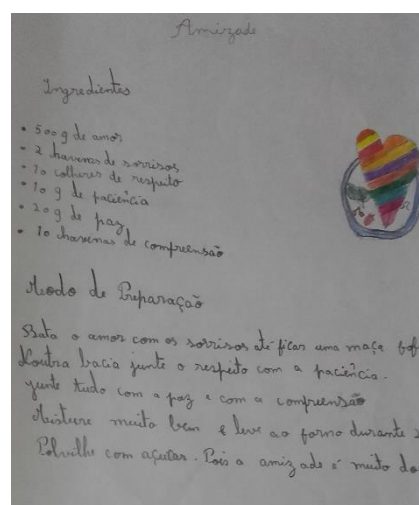 Amizade
Ingredientes
• 500 g de amor
• 2 havenas de sorrisos
• 10 colheres de respeito
• 10 g de paciência
• 20 g de paz
• 10 havenas de compreensão
Modo de Preparação
Bata o amor com os sorrisos até ficar uma maça fof
Noutra bacia junte o respeito com a paciência.
junte tudo com a paz e com a compreensão
Misture muito bem e leve ao forno durante
Polvilhe com açucar. Pois a amizade é muito do